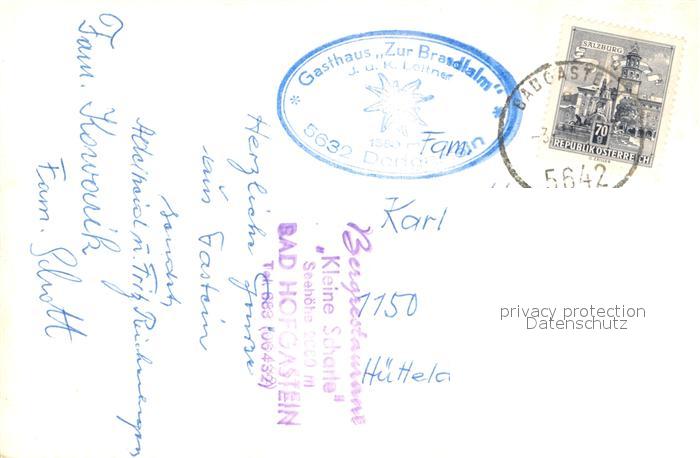 Gasthaus „Zur Brandlalm"
J. u. K. Leitner
5632 Dorfgastein
SALZBURG
70 g
REPUBLIK ÖSTERREICH
BADGASTEIN
5642
Fam.
Karl
1150
Hüttela
privacy protection
Datenschutz
Bergrestaurant
„Kleine Scharte"
Seehöhe 2050 m
BAD HOFGASTEIN
Tel. 683 (06432)
Herzliche Grüsse
aus Gastein
sendet
Adelheid u. Fritz
Fam. Kowarik
Fam. Schott